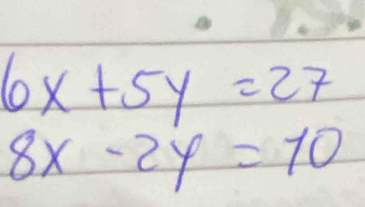 6x + 5y = 27
8x - 2y = 10